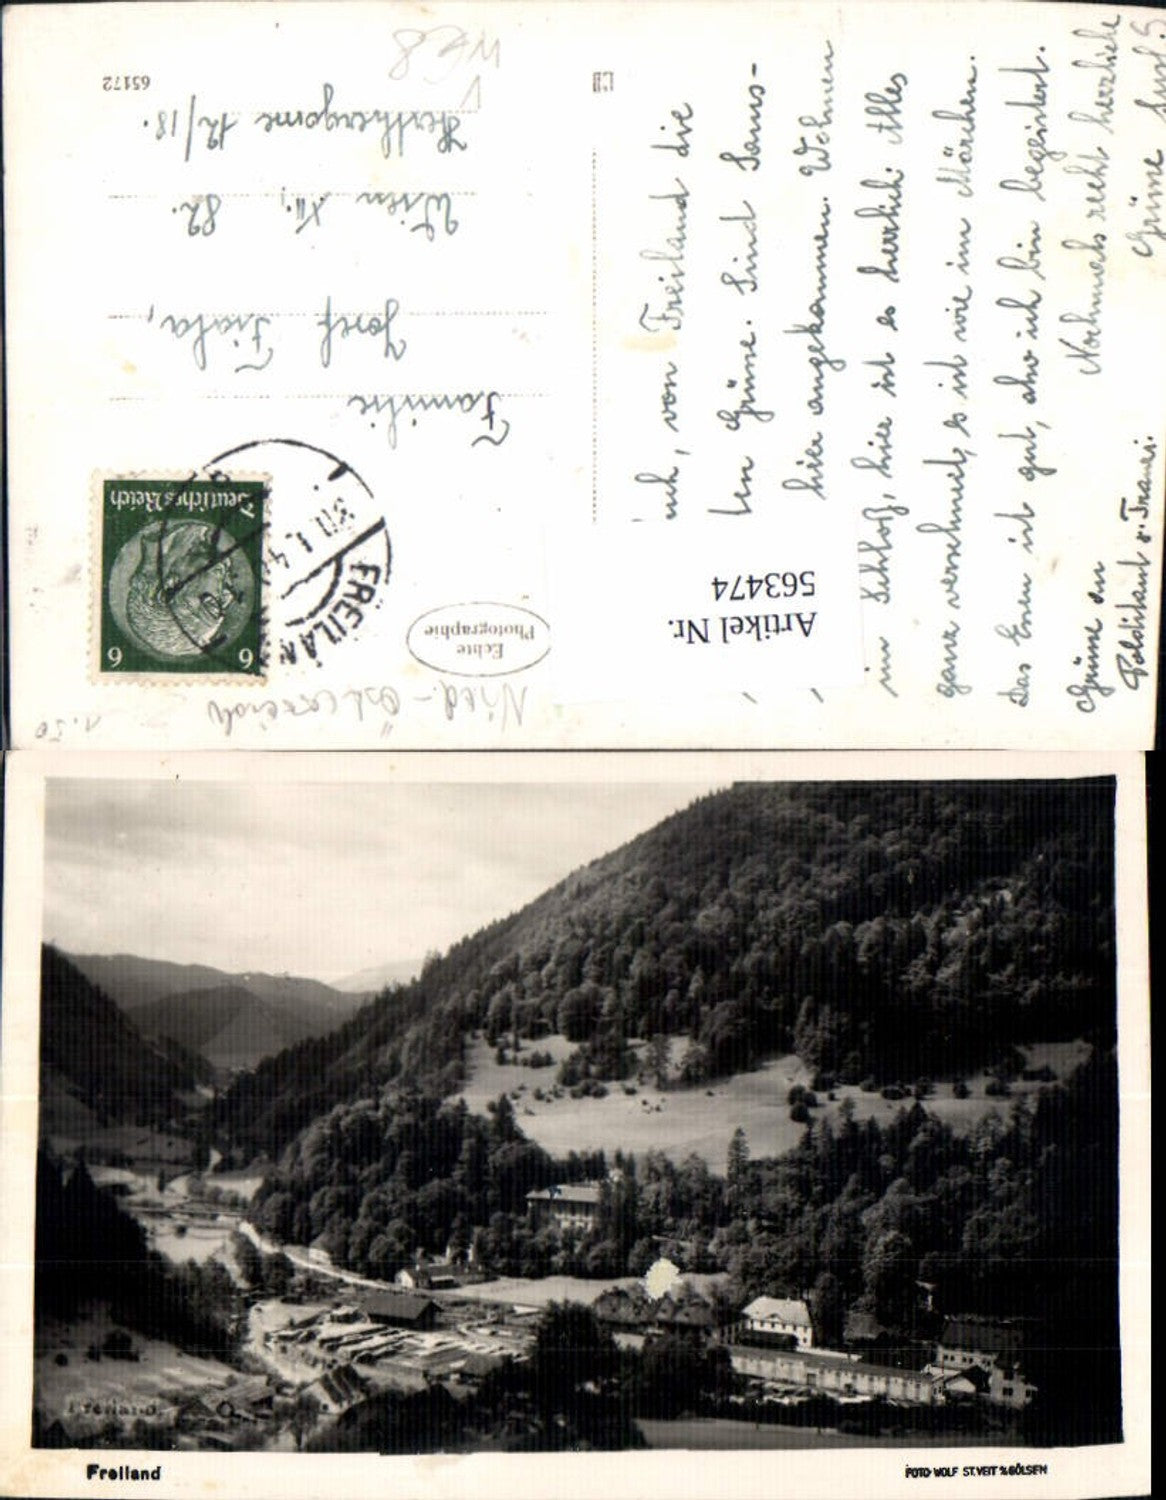 65172
V WE8
Familie
Josef Fiala,
Wien XII., 82.
Herthergasse 12/18.
Deutsches Reich
6 6
FREILAN
30.1.4
Echte
Photographie
Nied.-Österreich
1.50
Artikel Nr.
563474
uch, von Freiland die
ten Grüsse. Sind Sams-
hier angekommen. Wohnen
im Schloß, hier ist es herrlich. Alles
ganz verschneit, es ist wie im Märchen.
Das Essen ist gut, also ich bin begeistert.
Nochmals recht herzliche
Grüsse
Grüsse an
Polditant u. Franzi.
Freiland.
Freiland
FOTO-WOLF ST.VEIT a/GÖLSEN